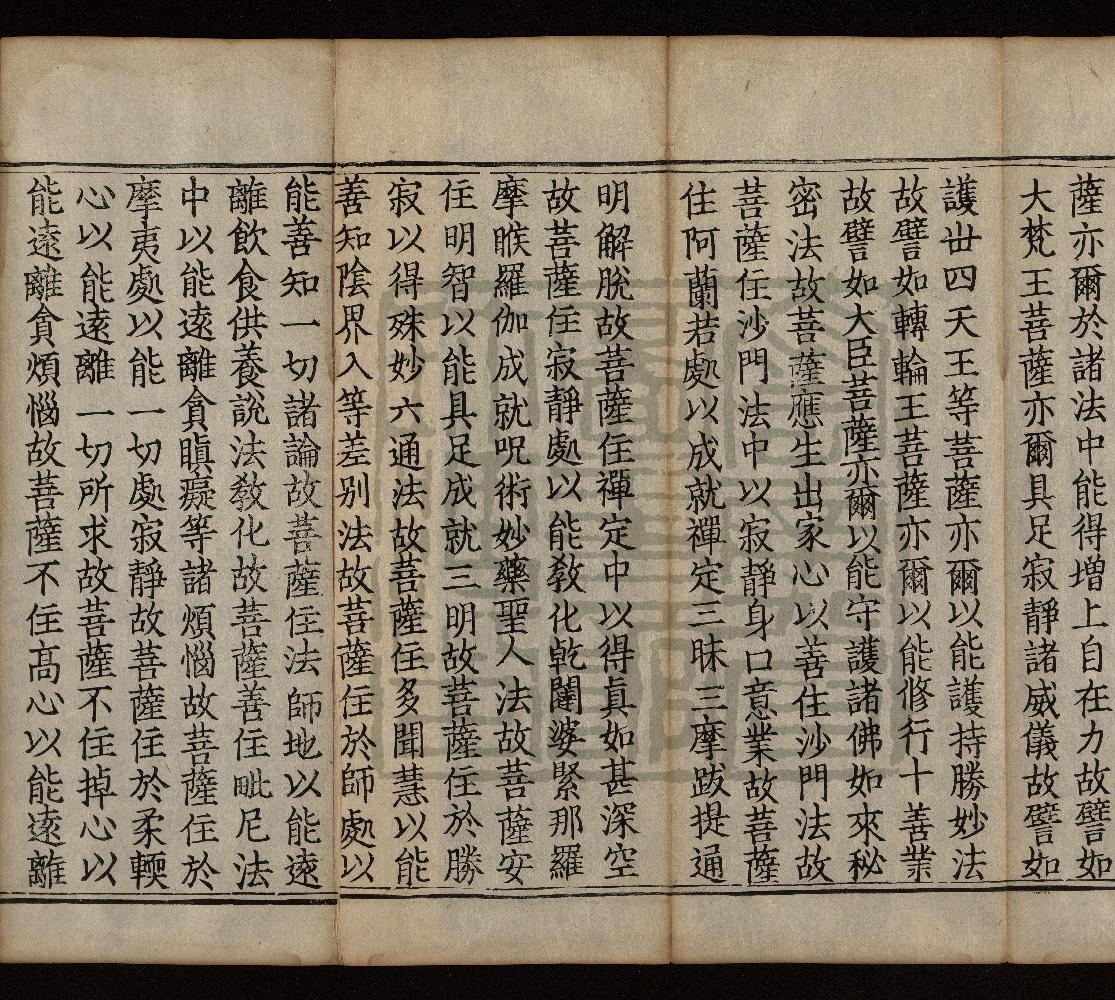 薩亦爾於諸法中能得增上自在力故譬如
大梵王菩薩亦爾具足寂靜諸威儀故譬如
護丗四天王等菩薩亦爾以能護持勝妙法
故譬如轉輪王菩薩亦爾以能修行十善業
故譬如大臣菩薩亦爾以能守護諸佛如來秘
密法故菩薩應生出家心以善住沙門法故
菩薩住沙門法中以寂靜身口意業故菩薩
住阿蘭若處以成就禪定三昧三摩跋提通
明解脫故菩薩住禪定中以得真如甚深空
故菩薩住寂靜處以能教化乾闥婆緊那羅
摩睺羅伽成就呪術妙藥聖人法故菩薩安
住明智以能具足成就三明故菩薩住於勝
寂以得殊妙六通法故菩薩住多聞慧以能
善知陰界入等差别法故菩薩住於師處以
能善知一切諸論故菩薩住法師地以能遠
離飲食供養說法教化故菩薩善住毗尼法
中以能遠離貪瞋癡等諸煩惱故菩薩住於
摩夷處以能一切處寂靜故菩薩住於柔輭
心以能遠離一切所求故菩薩不住掉心以
能遠離貪煩惱故菩薩不住高心以能遠離